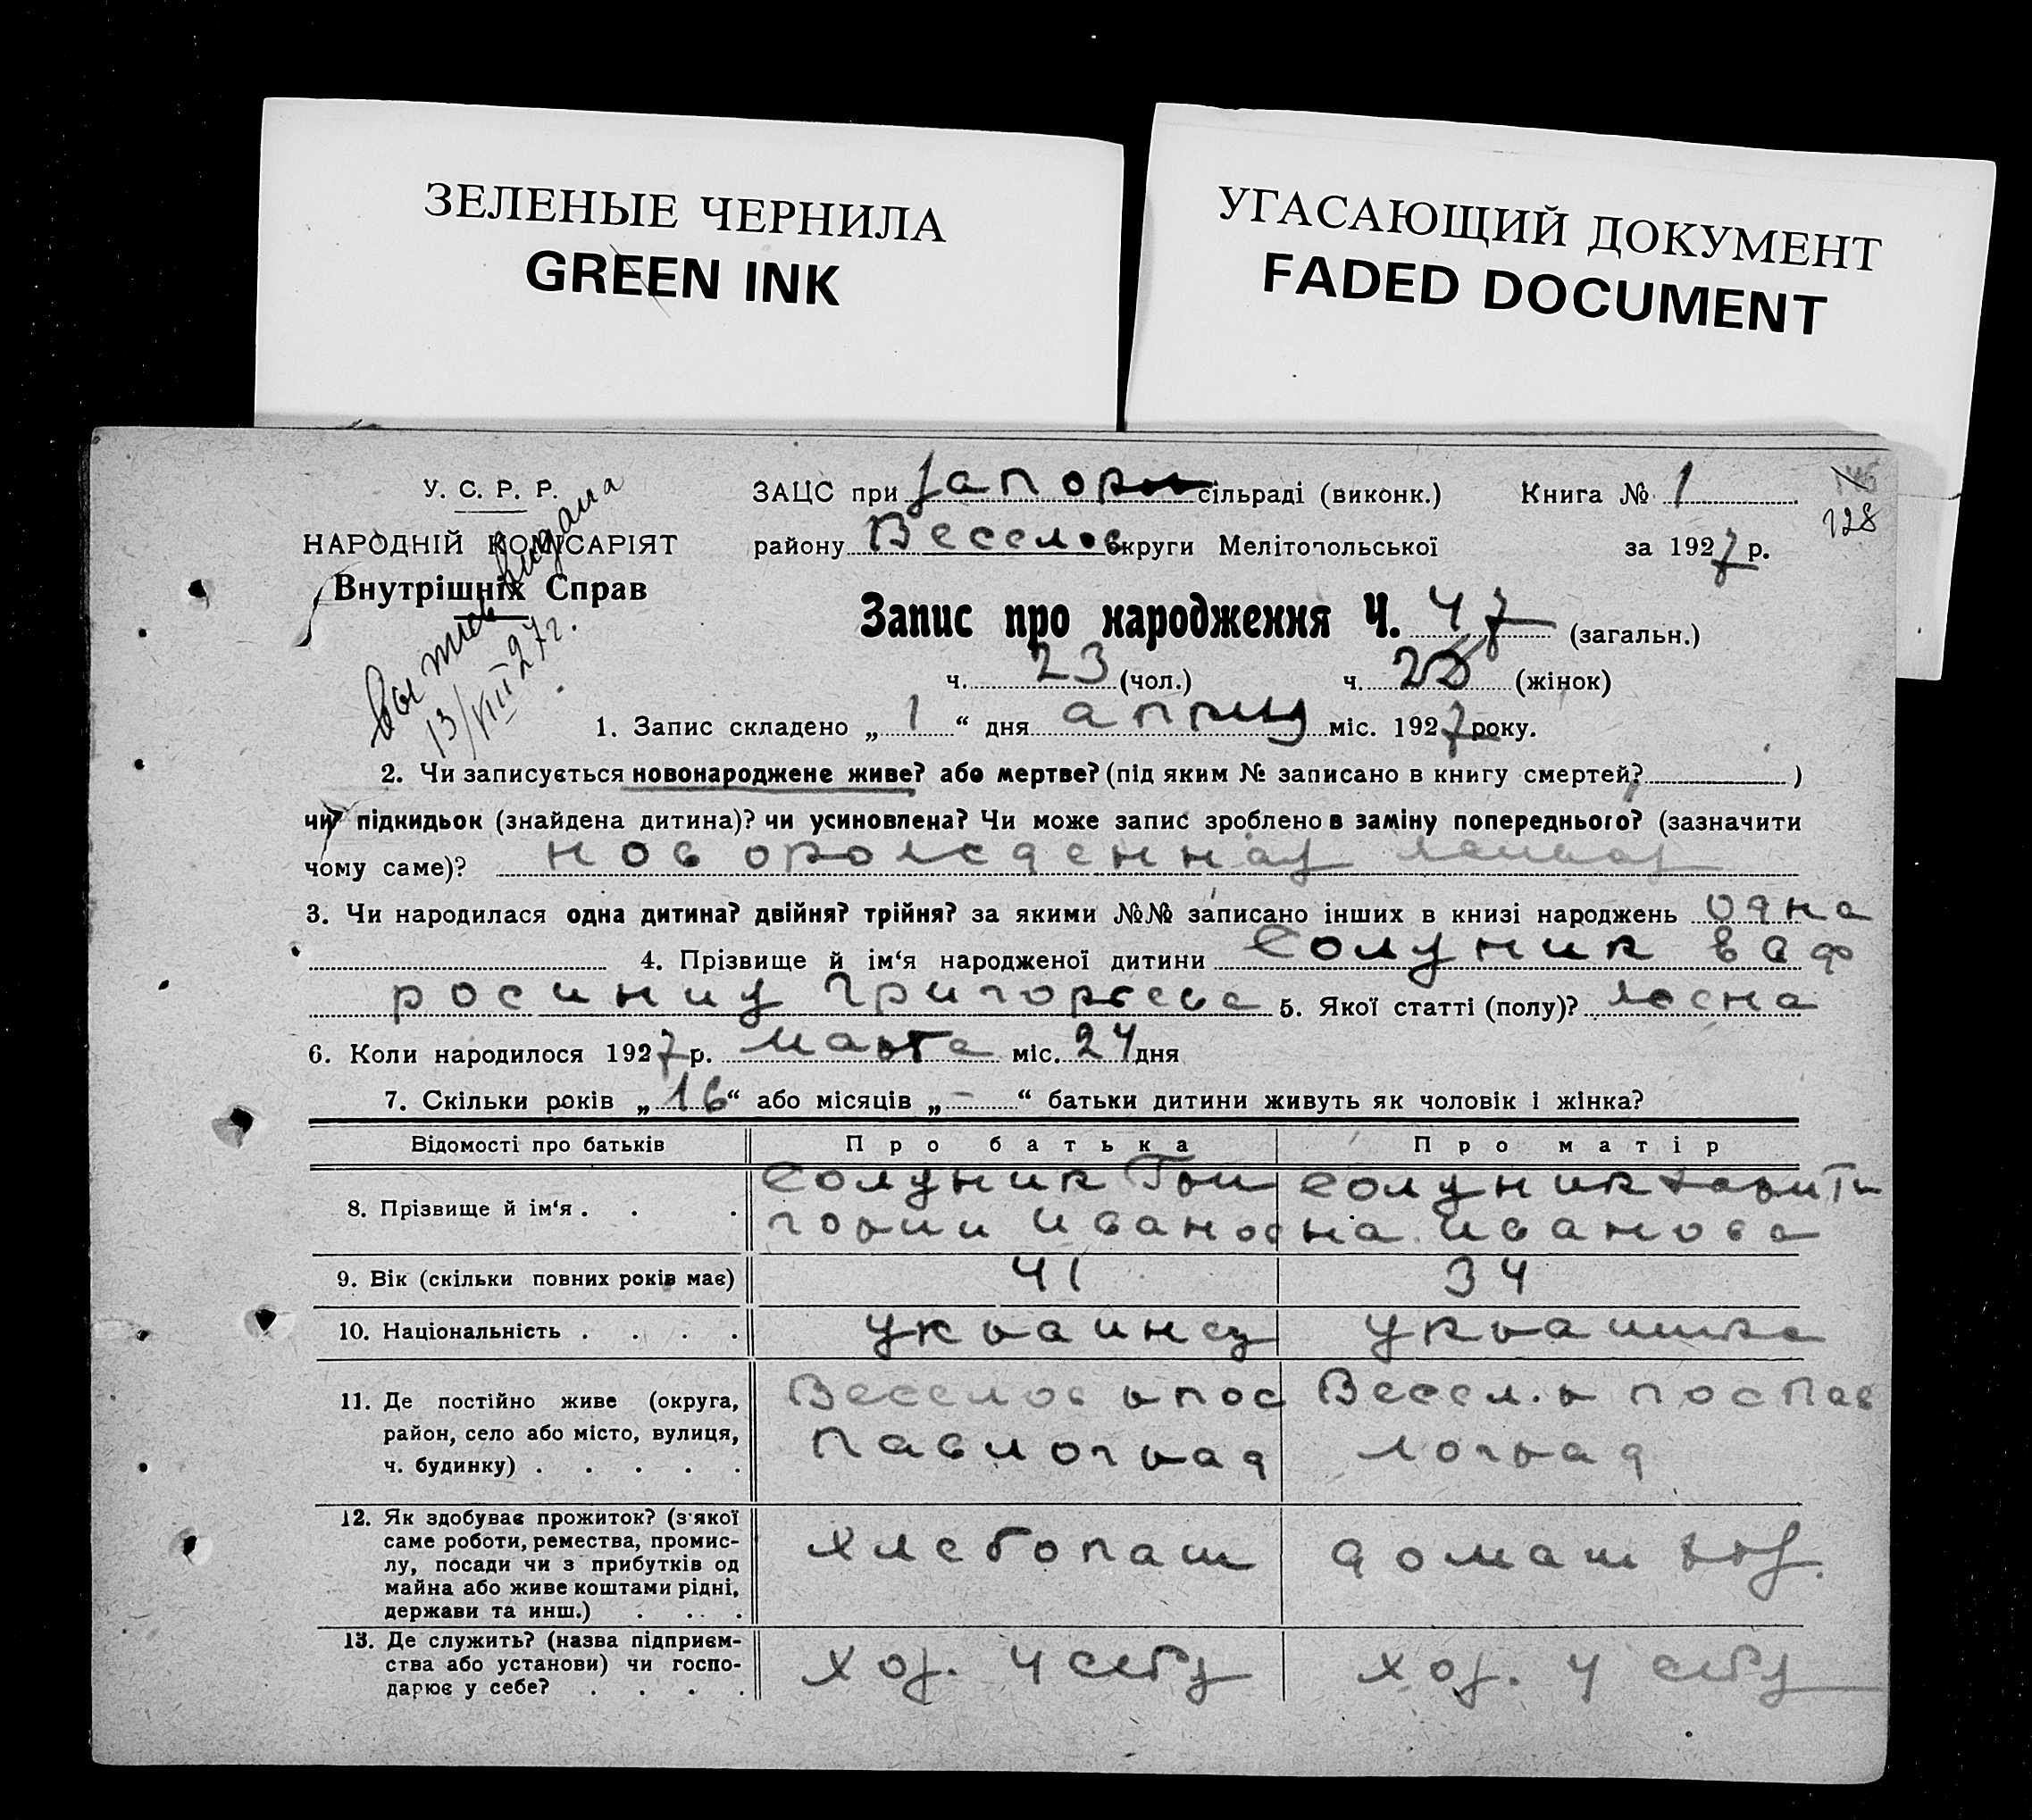 ЗЕЛЕНЫЕ ЧЕРНИЛА
GREEN INK
УГАСАЮЩИЙ ДОКУМЕНТ
FADED DOCUMENT
У. С. Р. Р.
НАРОДНІЙ КОМІСАРІЯТ
Внутрішніх Справ
видана
13/VIII 27 г.
ЗАЦС при сільраді (виконк.) Книга № 1
128
району Веселов округи Мелітопольської за 1927 р.
Запис про народження Ч. 47 (загальн.)
ч. 23 (чол.) ч. (жінок)
1. Запис складено „ 1 “ дня міс. 1927 року.
2. Чи записується новонароджене живе? або мертве? (під яким № записано в книгу смертей? )
чи підкидьок (знайдена дитина)? чи усиновлена? Чи може запис зроблено в заміну попереднього? (зазначити
чому саме)?
3. Чи народилася одна дитина? двійня? трійня? за якими №№ записано інших в книзі народжень одна
4. Прізвище й ім‘я народженої дитини Солуник
Григорьева 5. Якої статті (полу)?
6. Коли народилося 1927 р. марта міс. 24 дня
7. Скільки років „ 16 “ або місяців „ – “ батьки дитини живуть як чоловік і жінка?
Відомості про батьків Про батька Про матір
8. Прізвище й ім‘я . . . Солуник Гри Солуник
горий Иванов на Иванова
9. Вік (скільки повних років має) 41 34
10. Національність . . . . украинец украинка
11. Де постійно живе (округа, Веселов р пос Весел. р пос Пав
район, село або місто, вулиця, Павлоград лоград
ч. будинку) . . . . .
12. Як здобуває прожиток? (з'якої
саме роботи, ремества, промис-
лу, посади чи з прибутків од хлебопаш домаш
майна або живе коштами рідні,
держави та инш.) . . . .
13. Де служить? (назва підприєм-
ства або установи) чи госпо- хоз. у себя хоз. у себя
дарює у себе? . . . .